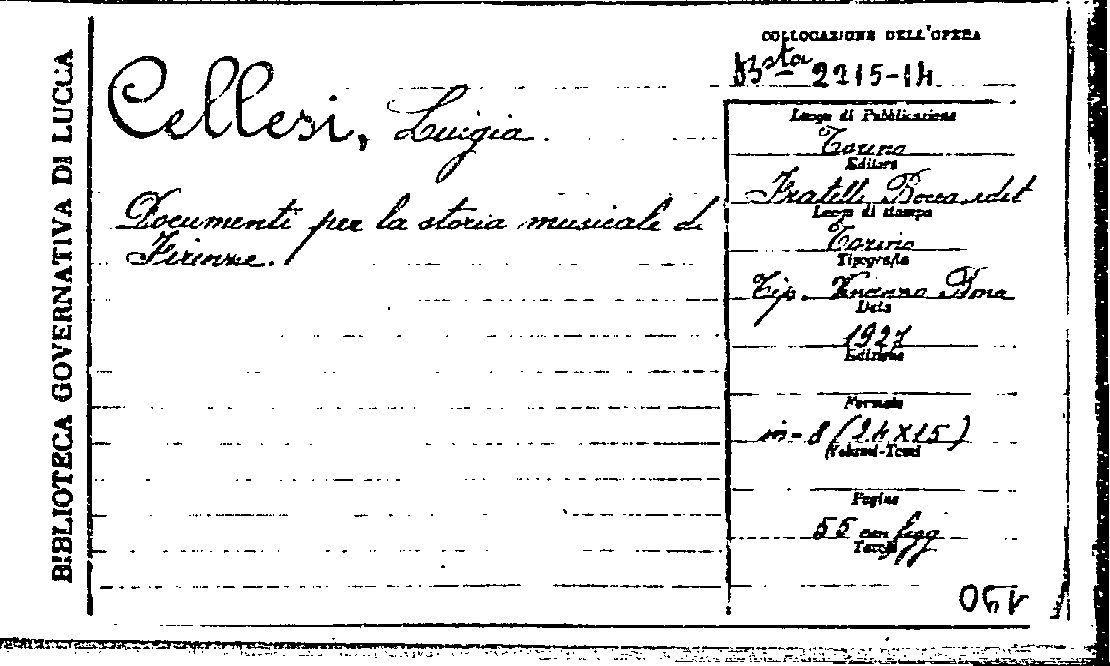 BIBLIOTECA GOVERNATIVA DI LUCCA
COLLOCAZIONE DELL'OPERA
Bsta 2215-14
Cellesi, Luigia.
Documenti per la storia musicale di
Firenze.
Luogo di Pubblicazione
Torino
Editore
Fratelli Bocca edit
Luogo di stampa
Torino
Tipografia
Tip. Vincenzo Bona
Data
1927
Edizione
Formato
in-8 (24X15)
Volumi-Tomi
Pagine
55 con figg
Tavole